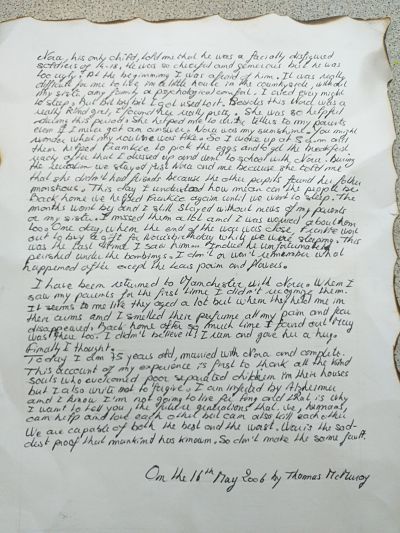 Nora, his only child, told me that he was a facially disfigured
soldiers of 14-18. He was so cheerful and generous but he was
too ugly! At the beginning I was afraid of him. It was really
difficult for me to live in a little house in the countryside, without
my sister, any family or psychological comfort. I cried every night
to sleep. But bit by bit I got used to it. Besides this Nora was a
really kind girl, I found her really pretty. She was so helpful
during this period. She helped me to write letters to my parents
even if I never got an answer. Nora was my sunshine. You might
wonder what my routine was like. So I woke up at 5 am and
then helped Frankie to pick the eggs and to get the breakfast
ready after that I dressed up and went to school with Nora. During
the we stayed just Nora and me because she told me
that she didn't had friends because the other pupils found her father
monstrous. This day I understood how mean can the people be.
Back home we helped Frankie again until we went to sleep. The
months went by and I still stayed without news of my parents
or my sister. I missed them a lot and I was worried about them
too. One day, when the end of the war was close, Frankie went
out to buy a gift for Nora's birthday while we were sleeping. This
was the last time I saw him. Indeed he unfortunately
perished under the bombings. I don't or won't remember what
happened after except the tears pain and flowers.
I have been returned to Manchester with Nora. When I
saw my parents for the first time I didn't recognize them.
It seems to me like they aged a lot but when they held me in
their arms and I smelled their perfume all my pain and fear
disappeared. Back home after so much time I found out Mary
was there too. I didn't believe it! I ran and gave her a hug.
Finally I thought.
Today I am 75 years old, married with Nora and complete.
This account of my experience is first to thank all the kind
souls who welcomed poor separated children in their houses
but I also write not to forget. I am infected by Alzheimer
and I know I'm not going to live for long and that is why
I want to tell you, the future generations that we, humans,
can help and love each other but can also kill each other
We are capable of both the best and the worst. War is the sad-
dest proof that mankind has known. So don't make the same fault.
On the 16th May 2006 by Thomas McMuroy